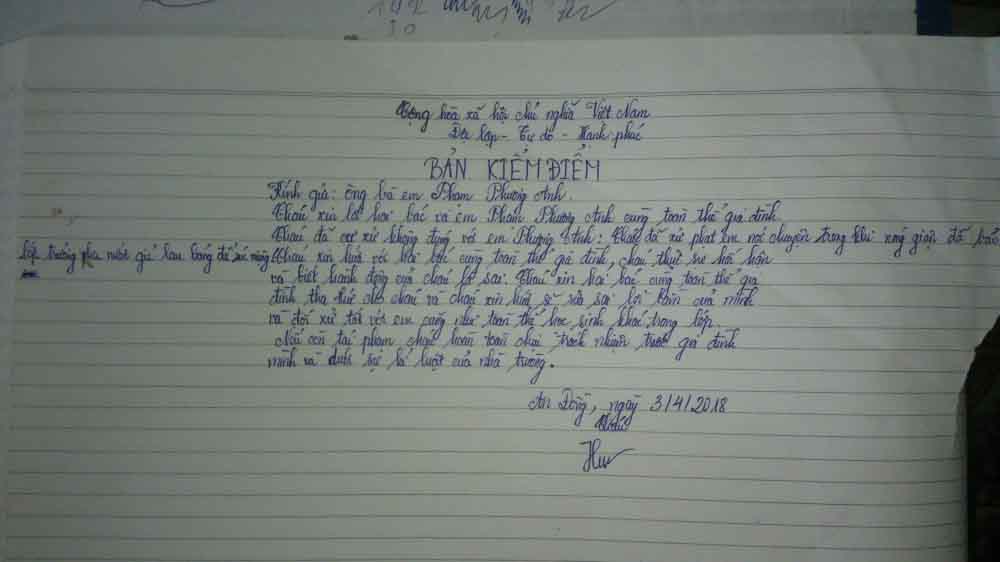 192
30
Cộng hòa xã hội chủ nghĩa Việt Nam
Độc lập - Tự do - Hạnh phúc
BẢN KIỂM ĐIỂM
Kính gửi: ông bà em Phạm Phương Anh.
Cháu xin lỗi hai bác và em Phạm Phương Anh cùng toàn thể gia đình
Cháu đã cư xử không đúng với em Phương Anh: Cháu đã xử phạt em nói chuyện trong khi nóng giận đã bảo
lớp trưởng pha nước giẻ lau bảng để súc miệng
Cháu xin hứa với hai bác cùng toàn thể gia đình, cháu thực sự hối hận
và biết hành động của cháu là sai. Cháu xin hai bác cùng toàn thể gia
đình tha thứ cho cháu và cháu xin hứa sẽ sửa sai lỗi lầm của mình
và đối xử tốt với em cũng như toàn thể học sinh khác trong lớp.
Nếu còn tái phạm cháu hoàn toàn chịu trách nhiệm trước gia đình
mình và chịu sự kỉ luật của nhà trường.
An Đồng, ngày 3/4/2018
Cháu